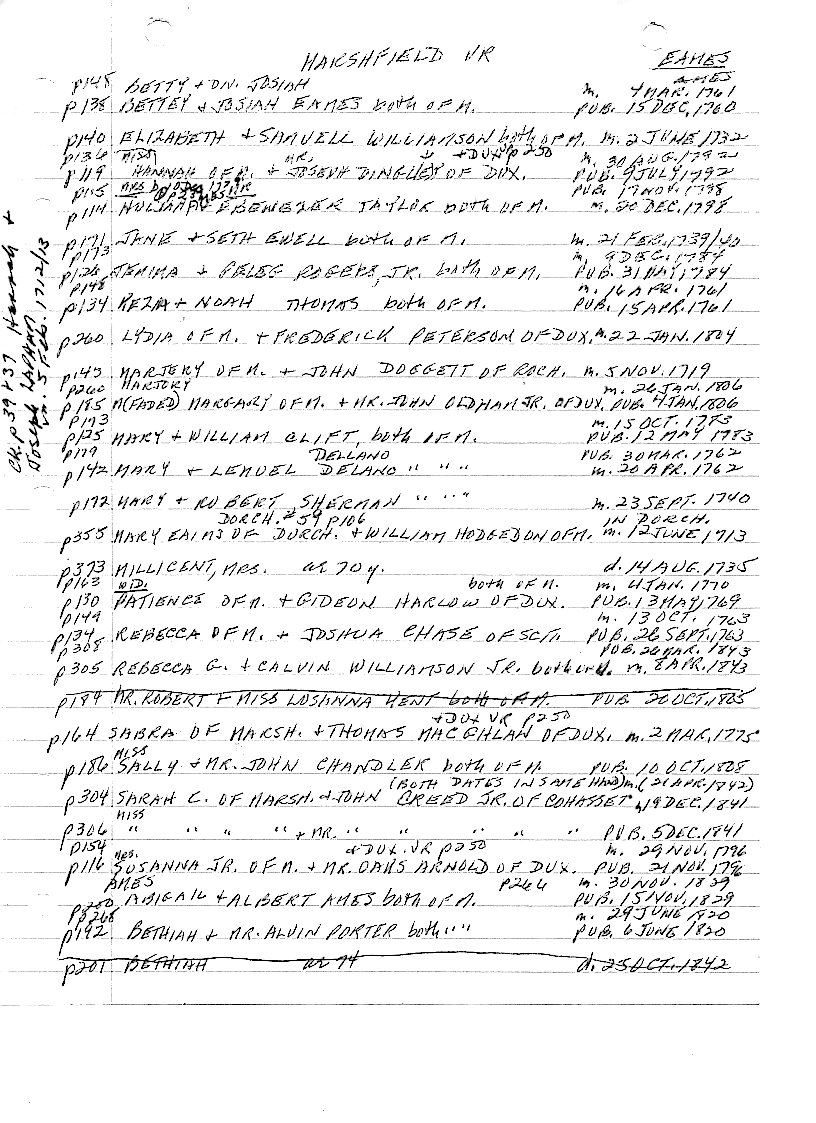 MARSHFIELD VR EAMES
AMES
p148 BETTY + DN. JOSIAH m. 4 MAR. 1761
p138 BETTEY & JOSIAH EAMES both OF M. PUB. 15 DEC, 1760
p140 ELIZABETH + SAMUELL WILLIAMSON both OF M. m. 2 JUNE 1732
p136 MISS MR. + DUX p250 m. 30 AUG. 1792
p119 HANNAH OF M. + JOSEPH DINGLEY OF DUX. PUB. 9 JULY 1792
p115 PUB. 17 NOV. 1798
p114 EBENEZER TAYLOR both OF M. m. 20 DEC. 1798
p171 JANE + SETH EWELL both OF M. m. 21 FEB. 1739/40
p173 m. 9 DEC. 1784
p126 JEMIMA + PELEG ROGERS, JR. both OF M. PUB. 31 MAY, 1784
p148 m. 16 APR. 1761
p134 KEZIA + NOAH THOMAS both OF M. PUB. 15 APR. 1761
p260 LYDIA OF M. + FREDERICK PETERSON OF DUX. m. 22 JAN. 1804
CK. p39+37 Hannah + Joseph LAPHAM m. 5 Feb. 1712/13
p143 MARJERY OF M. + JOHN DOGGETT OF ROCH. m. 5 NOV. 1719
p260 MARTORY m. 26 JAN. 1806
p185 M(FADED) MARGARY OF M. + MR. JOHN OLDHAM JR. OF DUX. PUB. 4 JAN. 1806
p173 m. 15 OCT. 1783
p125 MARY + WILLIAM CLIFT, both OF M. PUB. 12 MAY 1783
p179 DELLANO PUB. 30 MAR. 1762
p142 MARY + LEMUEL DELANO " " " m. 20 APR. 1762
p172 MARY + ROBERT SHERMAN " " " m. 23 SEPT. 1740
DORCH. #59 p106 IN DORCH.
p355 MARY EAIMS OF DORCH. + WILLIAM HODGEDON OF M. m. 12 JUNE 1713
p373 MILLICENT, MRS. ae 70 y. d. 14 AUG. 1735
p163 WID. both OF M. m. 4 JAN. 1770
p130 PATIENCE OF M. + GIDEON HARLOW OF DUX. PUB. 13 MAY, 1769
p149 m. 13 OCT. 1763
p134 REBECCA OF M. + JOSHUA CHASE OF SCIT. PUB. 26 SEPT. 1763
p308 PUB. 26 MAR. 1843
p305 REBECCA G. + CALVIN WILLIAMSON JR. both m. 8 APR. 1843
p184 MR. ROBERT + MISS LUSANNA KENT both OF M. PUB 20 OCT. 1805
+ DUX VR p250
p164 SABRA OF MARSH. + THOMAS MACGHLAN OF DUX. m. 2 MAR. 1775
MISS
p186 SALLY + MR. JOHN CHANDLER both OF M. PUB. 10 OCT. 1808
(BOTH DATES IN SAME HAND) m. (21 APR. 1842)
p304 SARAH C. OF MARSH. + JOHN CREED JR. OF COHASSET m 19 DEC. 1841
MISS
p306 " " " " + MR. " " " " " PUB. 5 DEC. 1841
p154 + DUX. VR p250 m. 29 NOV. 1796
p116 MRS. SUSANNA JR. OF M. + MR. OAKS ARNOLD OF DUX. PUB. 21 NOV. 1796
AMES p266 m. 30 NOV. 1829
p280 ABIGAIL + ALBERT AMES both OF M. PUB. 15 NOV. 1829
p268 m. 29 JUNE 1820
p192 BETHIAH + MR. ALVIN PORTER both " " PUB. 6 JUNE 1820
p201 BETHIAH ae 74 d. 25 OCT. 1842